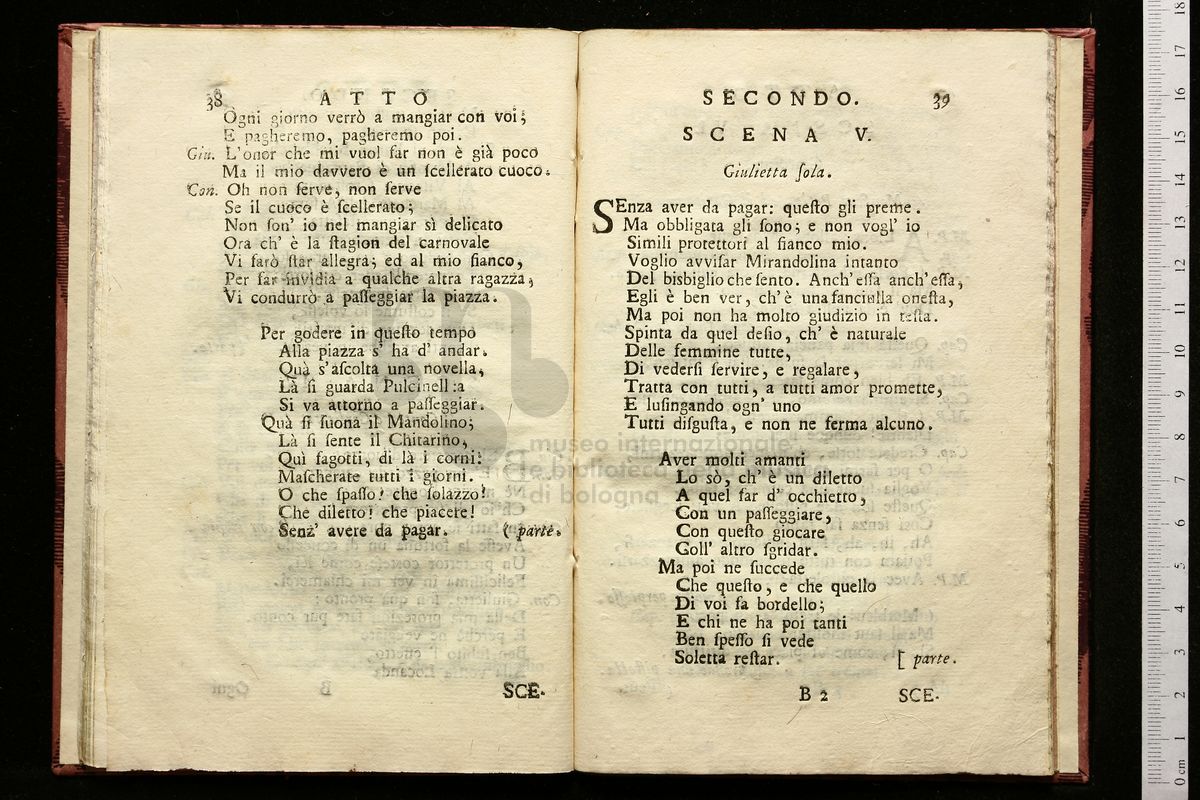 38 ATTO
Ogni giorno verrò a mangiar con voi;
E pagheremo, pagheremo poi.
Giu. L'onor che mi vuol far non è già poco
Ma il mio davvero è un ſcellerato cuoco.
Con. Oh non ſerve, non ſerve
Se il cuoco è ſcellerato;
Non ſon' io nel mangiar sì delicato
Ora ch' è la ſtagion del carnovale
Vi farò ſtar allegra; ed al mio fianco,
Per far invidia a qualche altra ragazza,
Vi condurrò a paſſeggiar la piazza.
Per godere in queſto tempo
Alla piazza s' ha d' andar.
Quà s'aſcolta una novella,
Là ſi guarda Pulcinell :a
Si va attorno a paſſeggiar.
Quà ſi ſuona il Mandolino;
Là ſi ſente il Chitarino,
Quì fagotti, di là i corni:
Maſcherate tutti i giorni.
O che ſpaſſo! che ſolazzo!
Che diletto! che piacere!
Senz' avere da pagar. ( parte.
SCE-
SECONDO. 39
SCENA V.
Giulietta ſola.
SEnza aver da pagar: queſto gli preme.
Ma obbligata gli ſono; e non vogl' io
Simili protettori al fianco mio.
Voglio avviſar Mirandolina intanto
Del bisbiglio che ſento. Anch' eſſa anch' eſſa,
Egli è ben ver, ch' è una fanciulla oneſta,
Ma poi non ha molto giudizio in teſta.
Spinta da quel deſio, ch' è naturale
Delle femmine tutte,
Di vederſi ſervire, e regalare,
Tratta con tutti, a tutti amor promette,
E luſingando ogn' uno
Tutti diſguſta, e non ne ferma alcuno.
Aver molti amanti
Lo sò, ch' è un diletto
A quel far d' occhietto,
Con un paſſeggiare,
Con queſto giocare
Coll' altro ſgridar.
Ma poi ne ſuccede
Che queſto, e che quello
Di voi fa bordello;
E chi ne ha poi tanti
Ben ſpeſſo ſi vede
Soletta reſtar. [ parte.
B 2 SCE-
museo internazionale
e biblioteca della musica
di bologna
0 cm 1 2 3 4 5 6 7 8 9 10 11 12 13 14 15 16 17 18